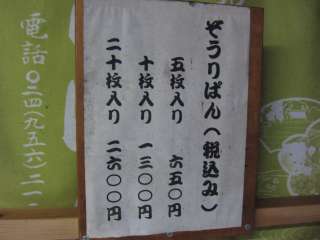 ぞうりぱん（税込み）
五枚入り 六五〇円
十枚入り 一三〇〇円
二十枚入り 二六〇〇円
電話〇二四（九五六）二一